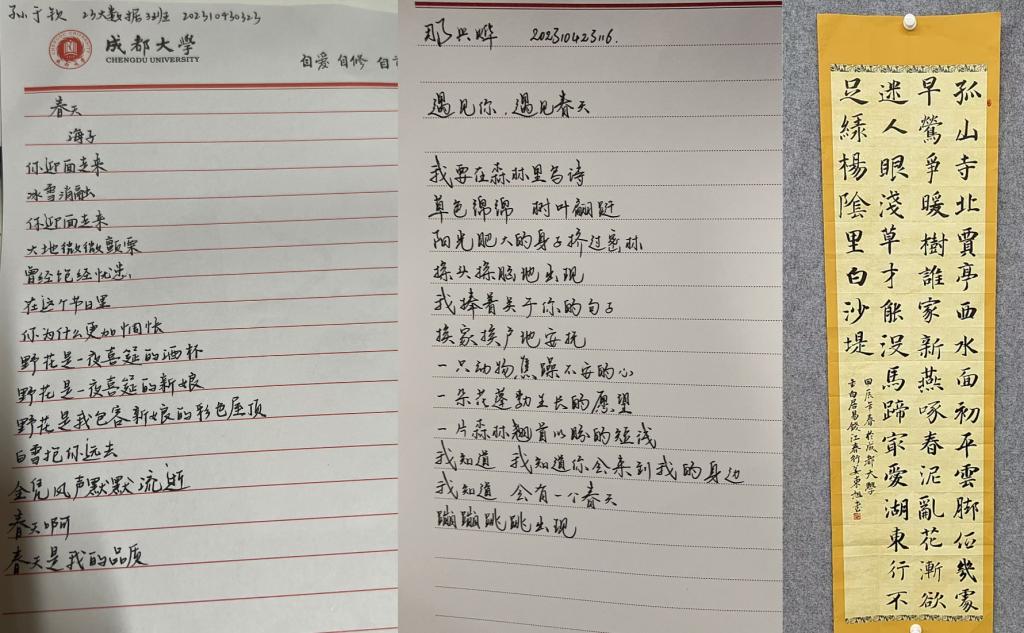 孙于钦 23大数据3班 202310430323
成都大学
CHENGDU UNIVERSITY
自爱 自修 自
春天
海子
你迎面走来
冰雪消融
你迎面走来
大地微微颤栗
曾经饱经忧患
在这个节日里
你为什么更加惆怅
野花是一夜喜筵的酒杯
野花是一夜喜筵的新娘
野花是我包容新娘的彩色屋顶
白雪抱你远去
全凭风声默默流逝
春天啊
春天是我的品质
202310423116
遇见你，遇见春天
我要在森林里写诗
草色绵绵 树叶翩跹
阳光肥大的身子挤过密林
探头探脑地出现
我捧着关于你的句子
挨家挨户地安抚
一只动物焦躁不安的心
一朵花蓬勃生长的愿望
一片森林翘首以盼的短浅
我知道 我知道你会来到我的身边
我知道 会有一个春天
蹦蹦跳跳出现
孤山寺北賈亭西水面初平雲脚低幾處
早鶯爭暖樹誰家新燕啄春泥亂花漸欲
迷人眼淺草才能没馬蹄最愛湖東行不
足緑楊陰里白沙堤
甲辰年春於成都大學
白居易錢江春行姜東旭書